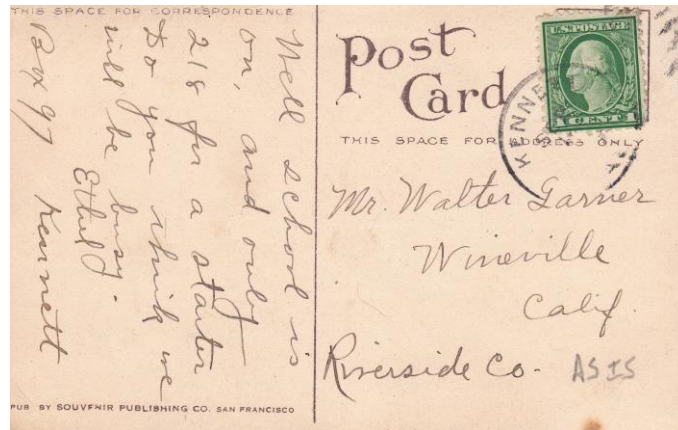 THIS SPACE FOR CORRESPONDENCE
Well school is
on, and only
218 for a starter
Do you think we
will be busy.
Ethel J.
Box 97 Kennett
PUB BY SOUVENIR PUBLISHING CO. SAN FRANCISCO
Post
Card
THIS SPACE FOR ADDRESS ONLY
U.S. POSTAGE
1 CENT 1
KENNE
Mr. Walter Garner
Wineville
Calif.
Riverside Co.
AS IS